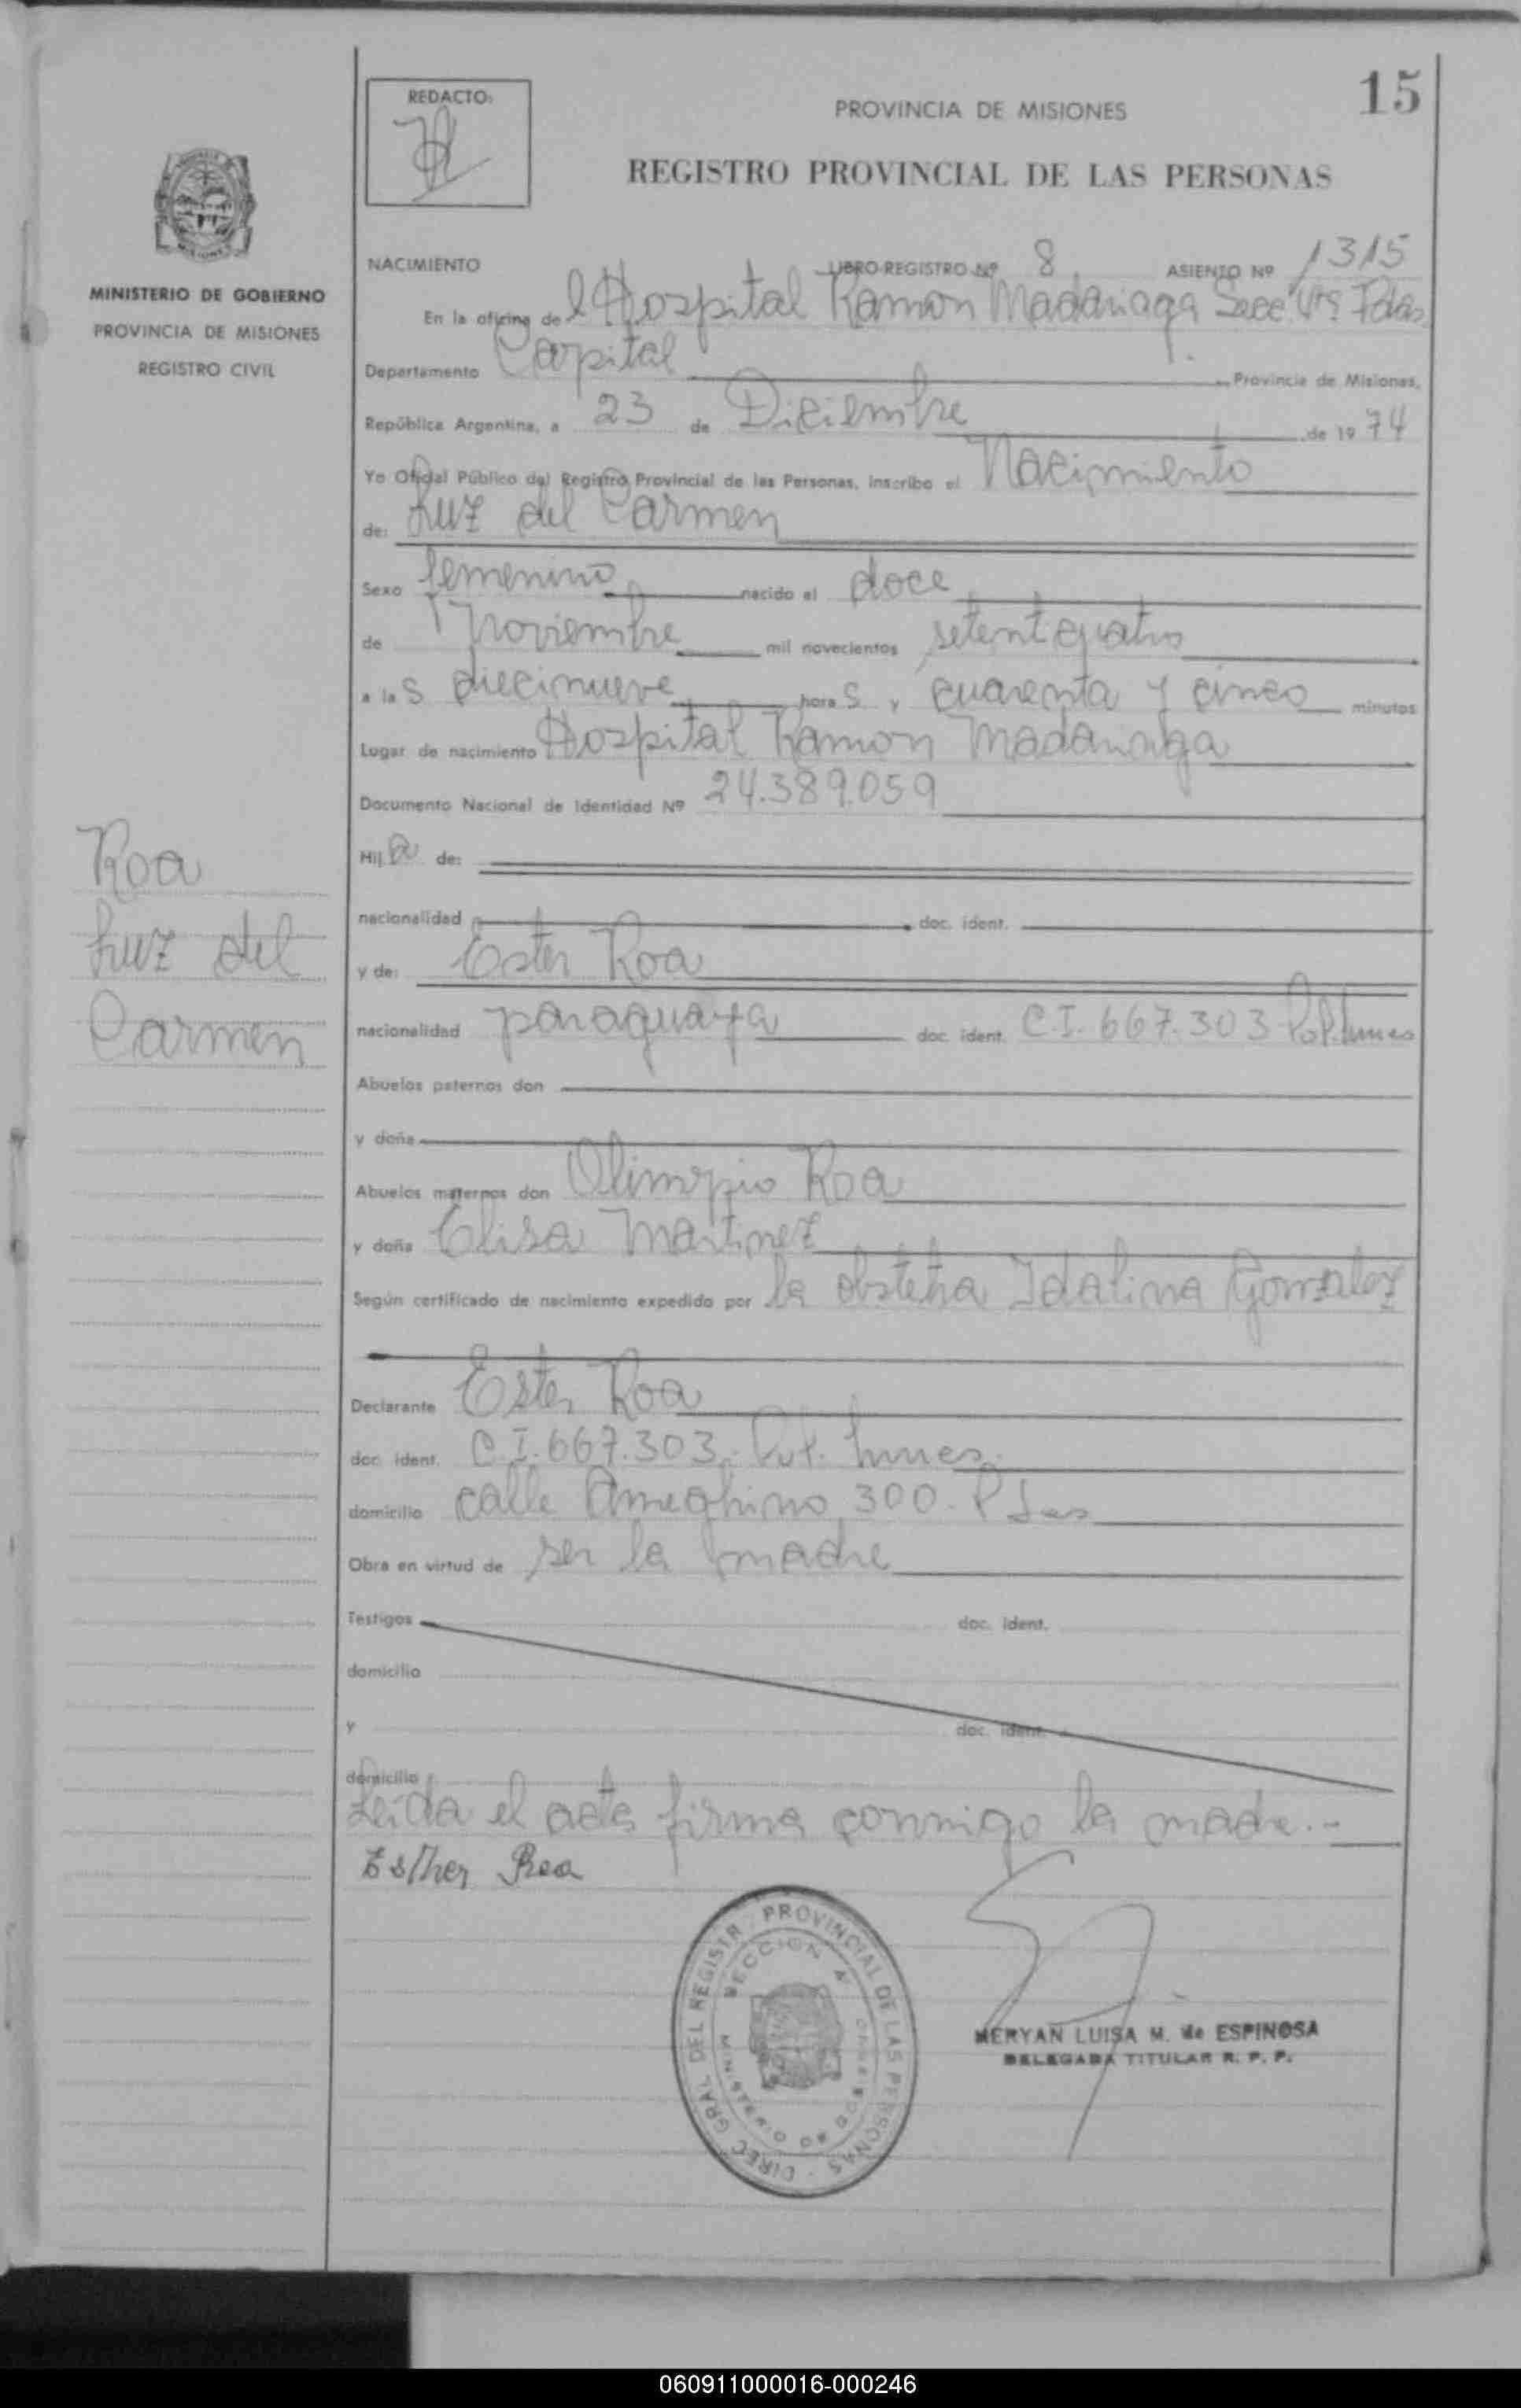 15
REDACTO:
PROVINCIA DE MISIONES
REGISTRO PROVINCIAL DE LAS PERSONAS
MINISTERIO DE GOBIERNO
PROVINCIA DE MISIONES
REGISTRO CIVIL
NACIMIENTO LIBRO-REGISTRO Nº 8 ASIENTO Nº 1315
En la oficina del Hospital Ramon Madariaga Secc. Pdas.
Departamento Capital Provincia de Misiones,
República Argentina, a 23 de Diciembre de 19 74
Yo Oficial Público del Registro Provincial de las Personas, inscribo el Nacimiento
de: Luz del Carmen
Sexo femenino nacido el doce
de Noviembre mil novecientos setenticuatro
a las diecinueve horas y cuarenta y cinco minutos
Lugar de nacimiento Hospital Ramon Madariaga
Documento Nacional de Identidad Nº 24.389.059
Roa
Luz del
Carmen
Hija de:
nacionalidad doc. ident.
y de: Ester Roa
nacionalidad paraguaya doc. ident. C.I. 667.303 Pol.
Abuelos paternos don
y doña
Abuelos maternos don Olimpio Roa
y doña Elisa Martinez
Según certificado de nacimiento expedido por la obstetra Idalina Gonzalez
Declarante Ester Roa
doc. ident. C.I. 667.303. Pol.
domicilio calle Ameghino 300. Pdas
Obra en virtud de ser la madre
Testigos doc. ident.
domicilio
y doc. ident.
domicilio
Leida el acta firma conmigo la madre.-
Esther Roa
DIREC GRAL DEL REGISTR. PROVINCIAL DE LAS PERSONAS
SECCION
MINISTERIO DE GOBIERNO
MERYAN LUISA M. de ESPINOSA
DELEGADA TITULAR R. P. P.
060911000016-000246